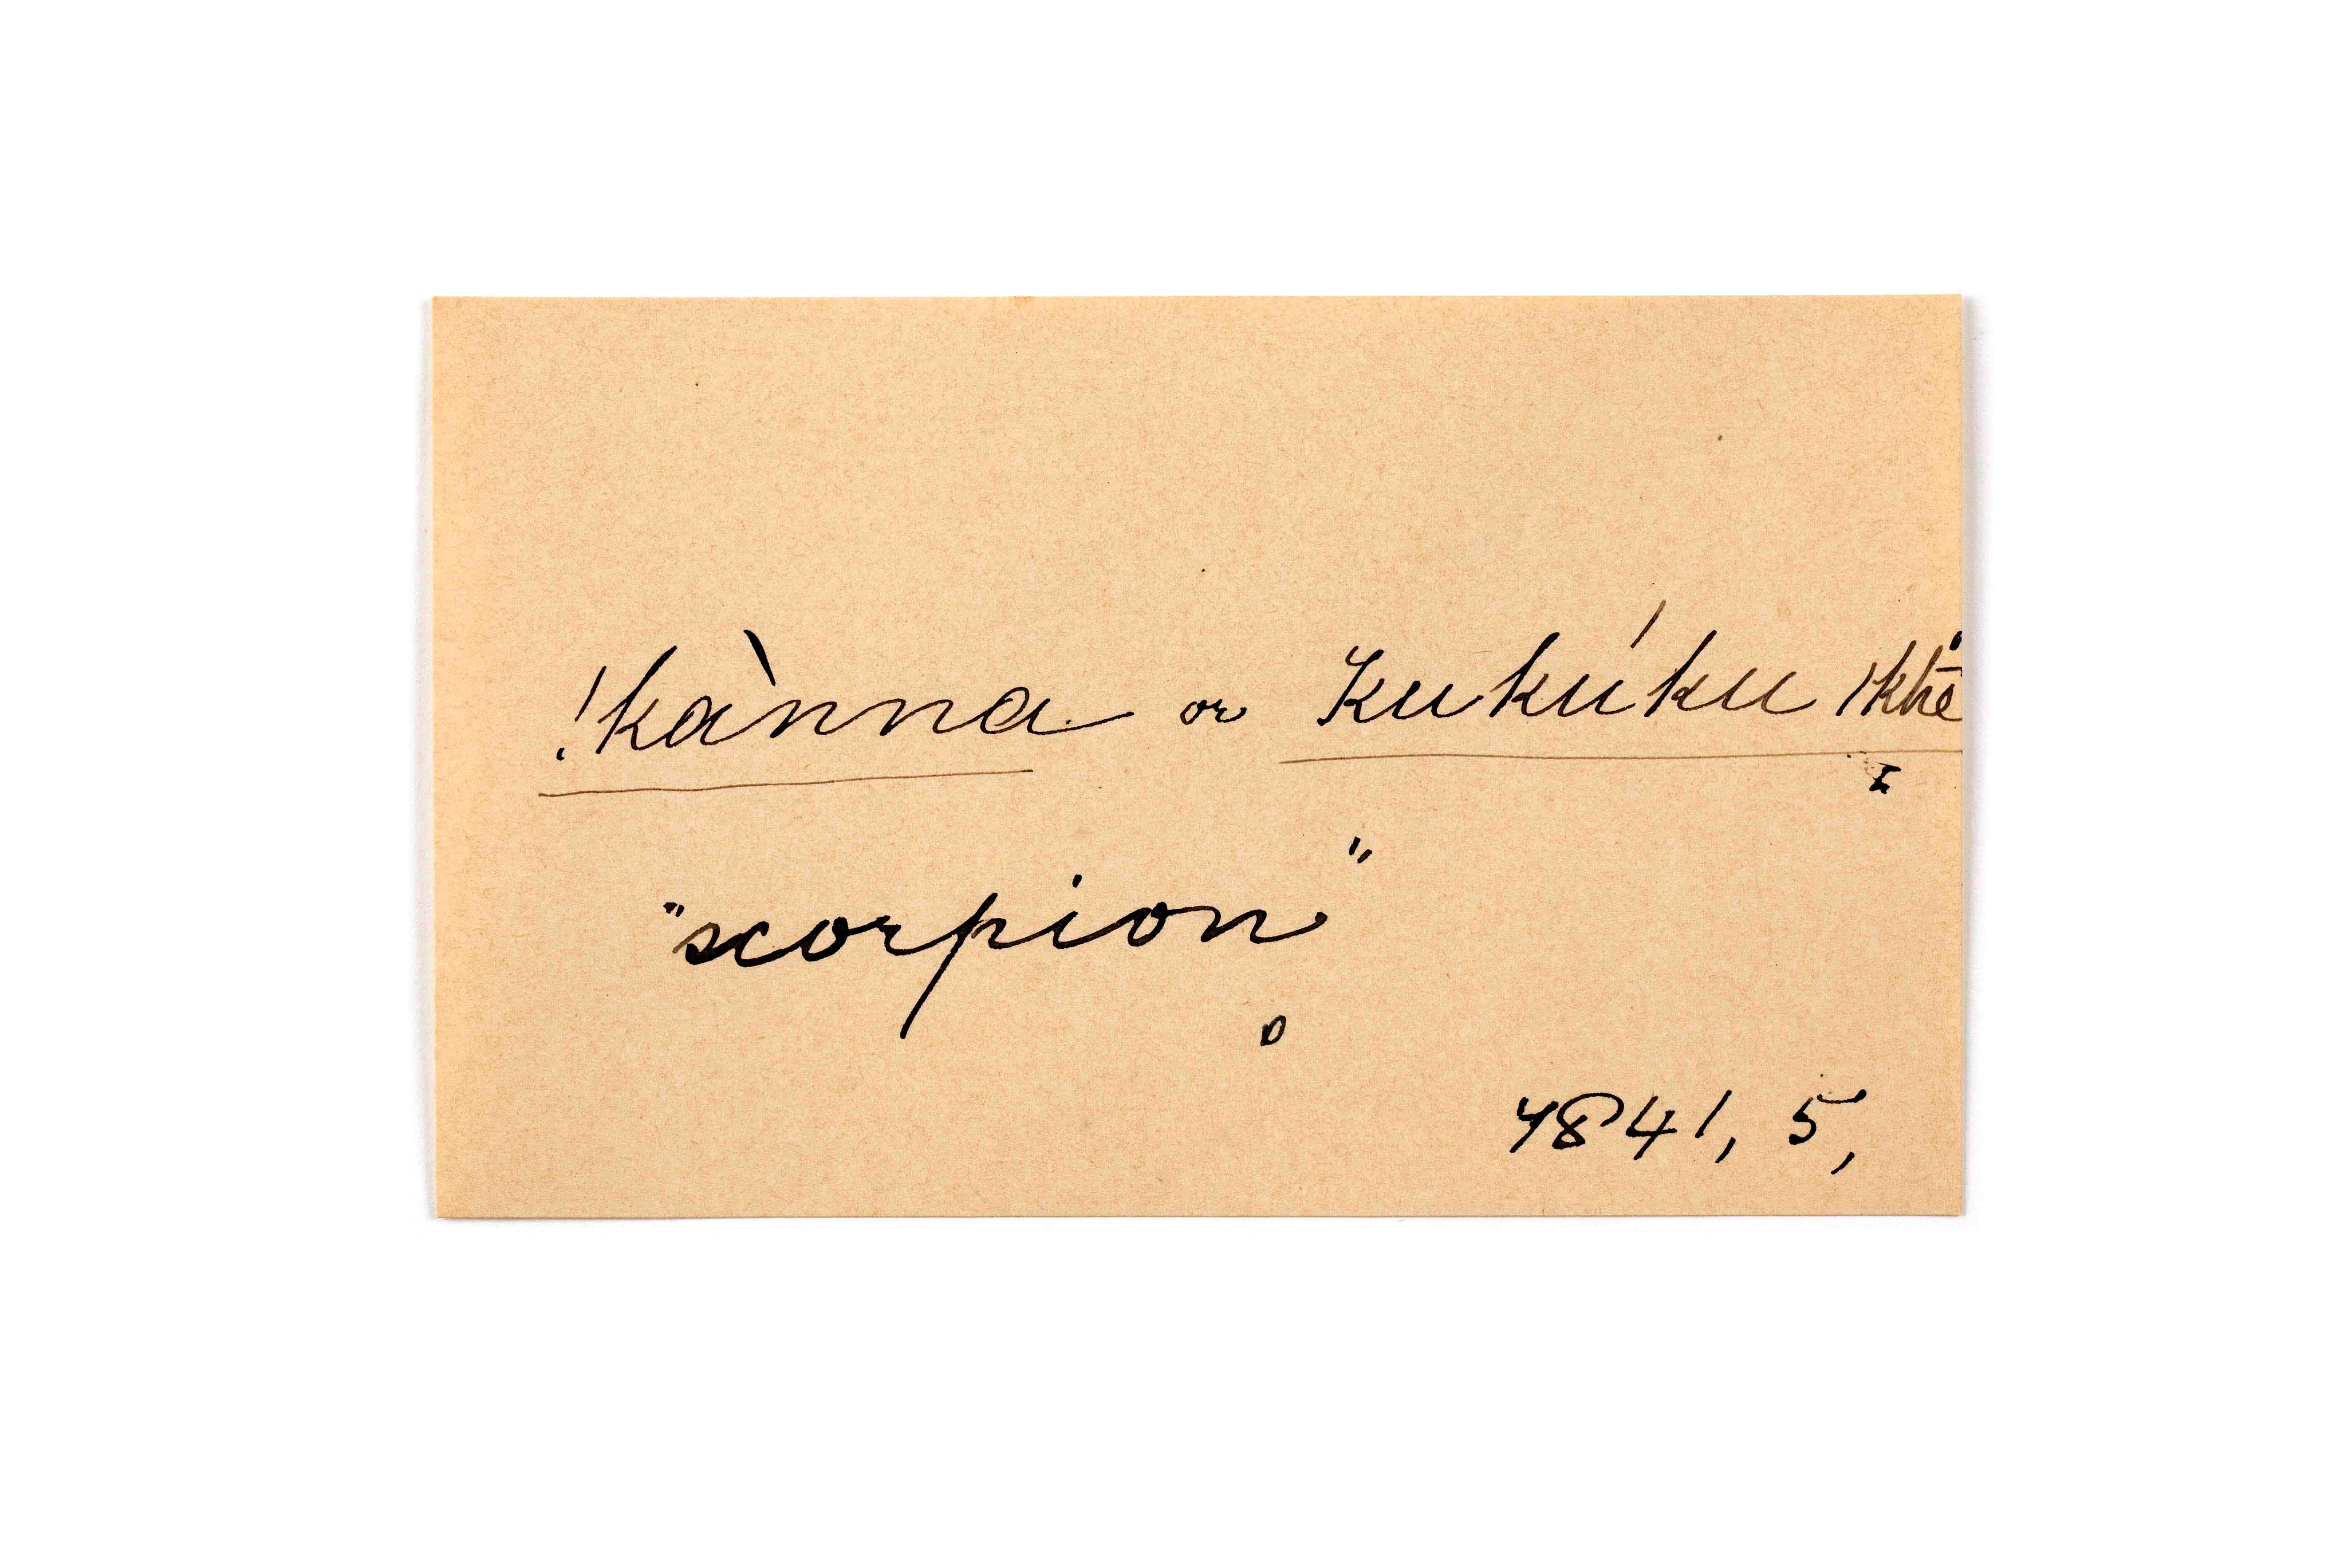 !kànna or Kukúku /khē
"scorpion"
4841, 5,